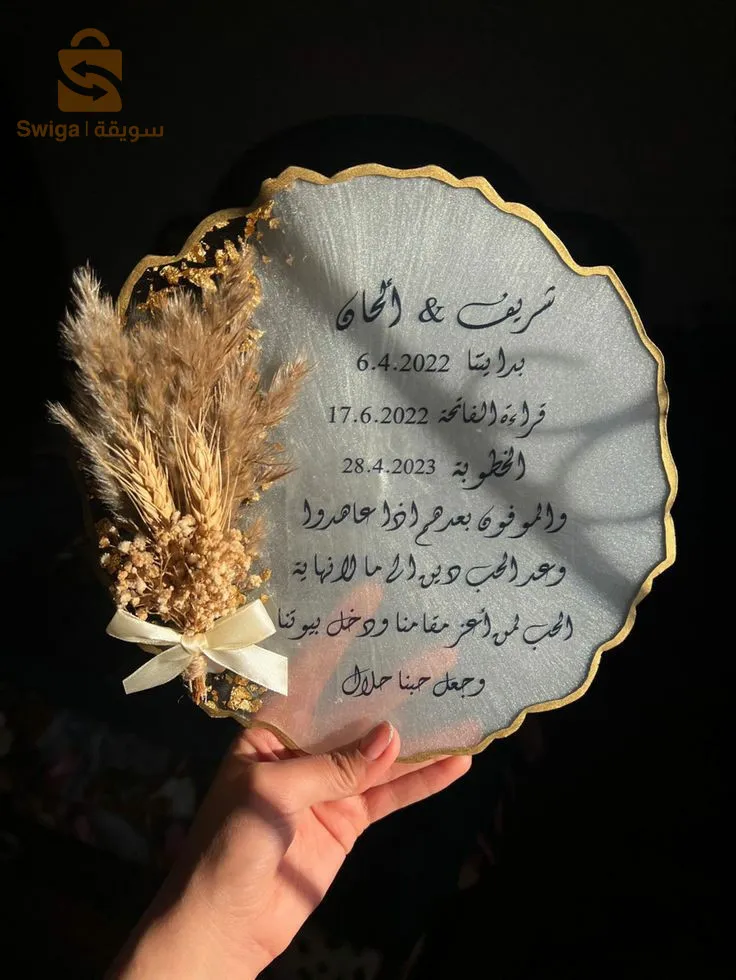 Swiga | سويقة
شريف & ألحان
بدايتنا 6.4.2022
قراءة الفاتحة 17.6.2022
الخطوبة 28.4.2023
والموفون بعدهم اذا عاهدوا
وعد الحب دين الى ما لانهاية
الحب لمن أعز مقامنا ودخل بيوتنا
وجعل حبنا حلال